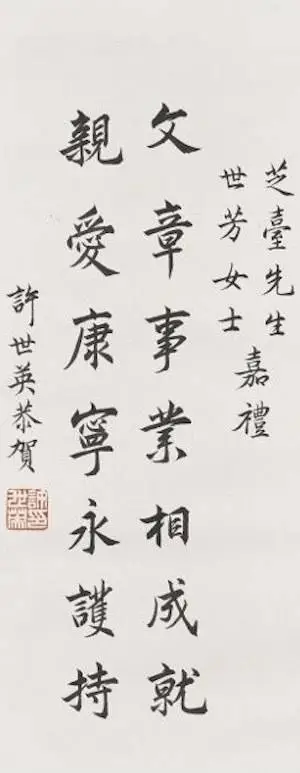 芝臺先生
世芳女士
嘉禮
文章事業相成就
親愛康寧永護持
許世英恭賀